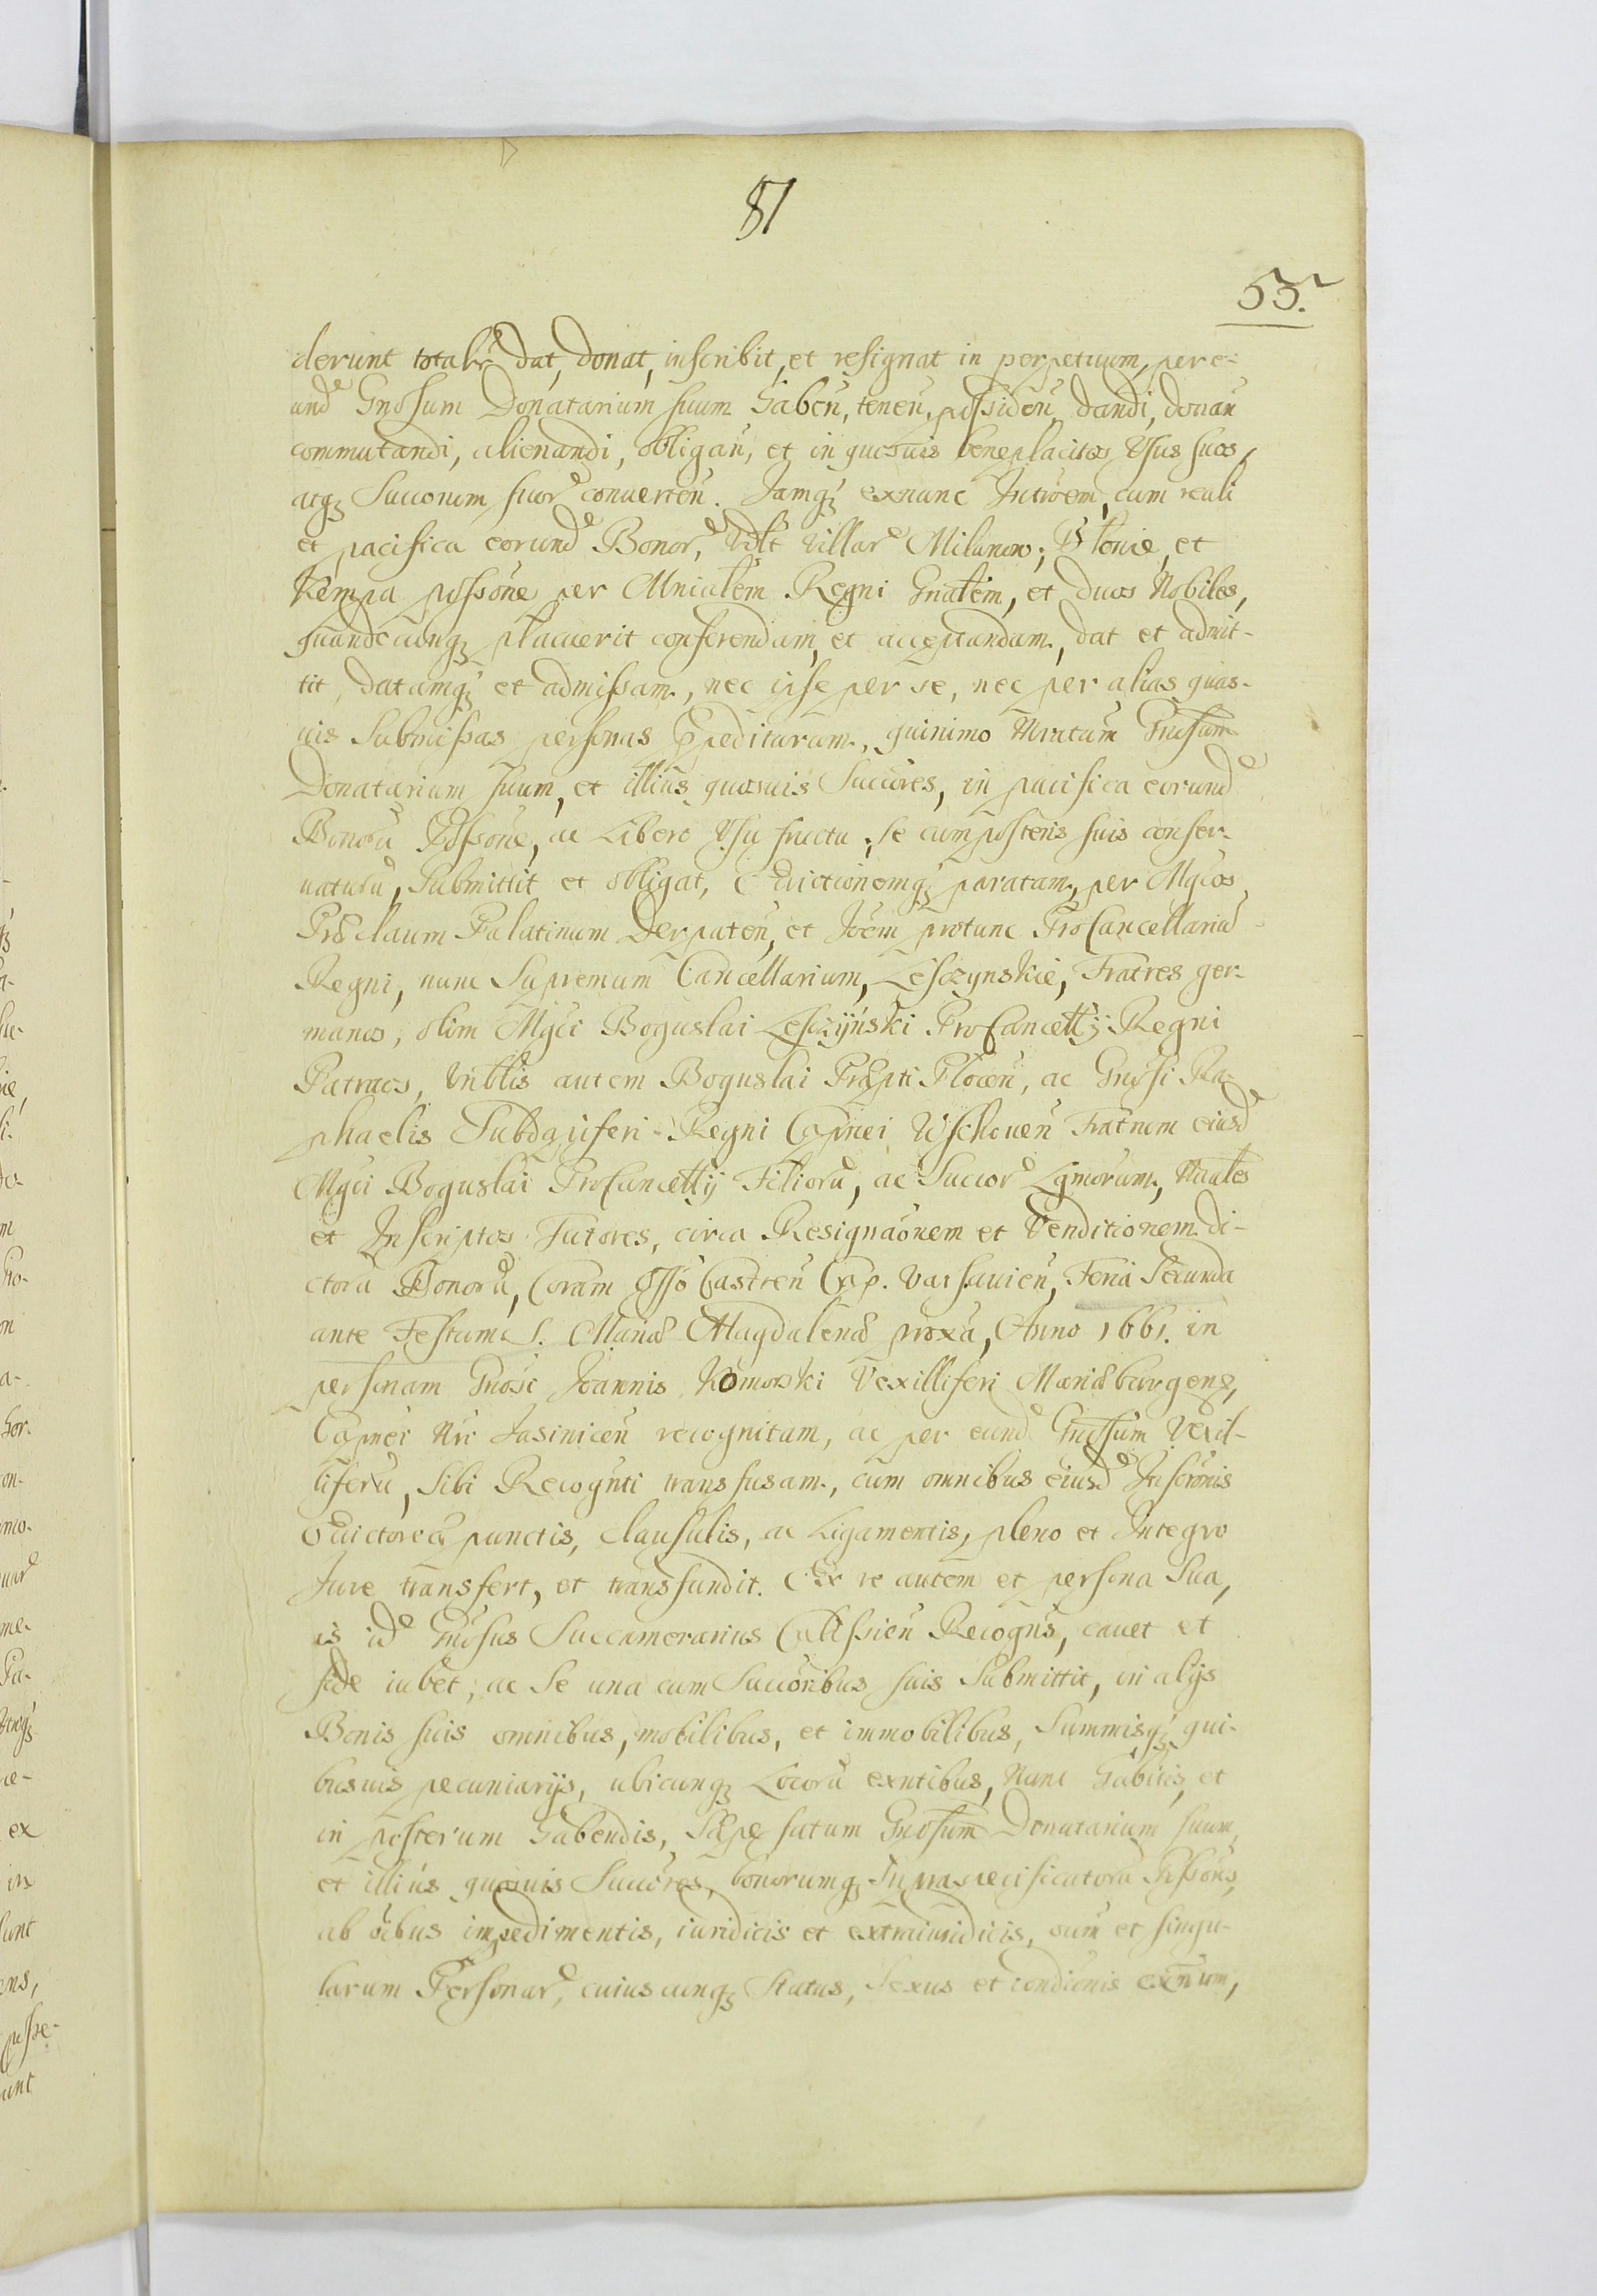 81
53.
derunt totalr dat, donat, inscribit, et resignat in perpetuum, per e-
und Gnosum Donatarium suum habeñ, teneñ, possideñ, dandi, donañ
commutandi, alienandi, obligañ, et in quosuis beneplacitos Vsus suos,
atq; Succorum suor conuerteñ. Jamq; exnunc Intrõem, cum reali
et pacifica eorund Bonor, vdlt villar Milanow, Błonie, et
Kempa possõne per Mnialem Regni Gnalem, et duos Nobiles,
quandocunq; placuerit conferendam, et acceptandam, dat et admit-
tit, datamq; et admissam, nec ipse per se, nec per alias quas-
uis Submissas personas Jmpedituram, quinimo Mratum Gnosum
Donatarium suum, et illius quosuis Succores, in pacifica eorund
Bonorũ Possõne, ac Libero Vsu fructu, se cum posteris suis conser-
naturũ, Submittit et obligat, Euictionemq; paratam, per Mgcos
Præclaum Palatinum Derpateñ, et Joem protunc ProCancellariũ
Regni, nunc Supremum Cancellarium, Lesczynskie, Fratres ger-
manos, olim Mgci Boguslai Lesczyński ProCancellij Regni
Patruos, Vnblis autem Boguslai Præpti Płoceñ, ac Gnosi Ra-
phaelis Subdapiferi Regni Capnei Wschoueñ Fratrum eiusd
Mgci Boguslai ProCancellij Filiorũ, ac Succor Lgmorum, Nnales
et Inscriptos Tutores, circa Resignaõnem et Venditionem di-
ctorũ Bonorũ, Coram Offo Castreñ Cap. Varsauieñ, Feria Secunda
ante Festum S. Mariæ Magdalenæ proxa, Anno 1661. in
personam Gnosi Joannis Komorski Vexilliferi Mariæburgens,
Capnei Nri Jasiniceñ recognitam, ac per eund Gnosum Vexil-
liferũ, Sibi Recognti transfusam, cum omnibus eiusd Inscrõnis
Euictoreæ punctis, clausulis, ac Ligamentis, pleno et Integro
Jure transfert, et transfundit. Ex re autem et persona Sua,
is id Gnosus Succamerarius Calissieñ Recogns, cauet et
fide iubet, ac Se una cum Succoribus suis Submittit, in alijs
Bonis suis omnibus, mobilibus, et immobilibus, Summisq; qui-
busuis pecuniarijs, ubicunq; Locorũ exntibus, Nunc habitis, et
in posterum habendis, Sæpe fatum Gnosum Donatarium suum,
et illius quosuis Succores, bonorumq; Supraspecificatorũ Possõns,
ab õibus impedimentis, iuridicis et extraiuridicis, oum et singu-
larum Personar, cuiuscunq; Status, Sexus et condionis exnum,